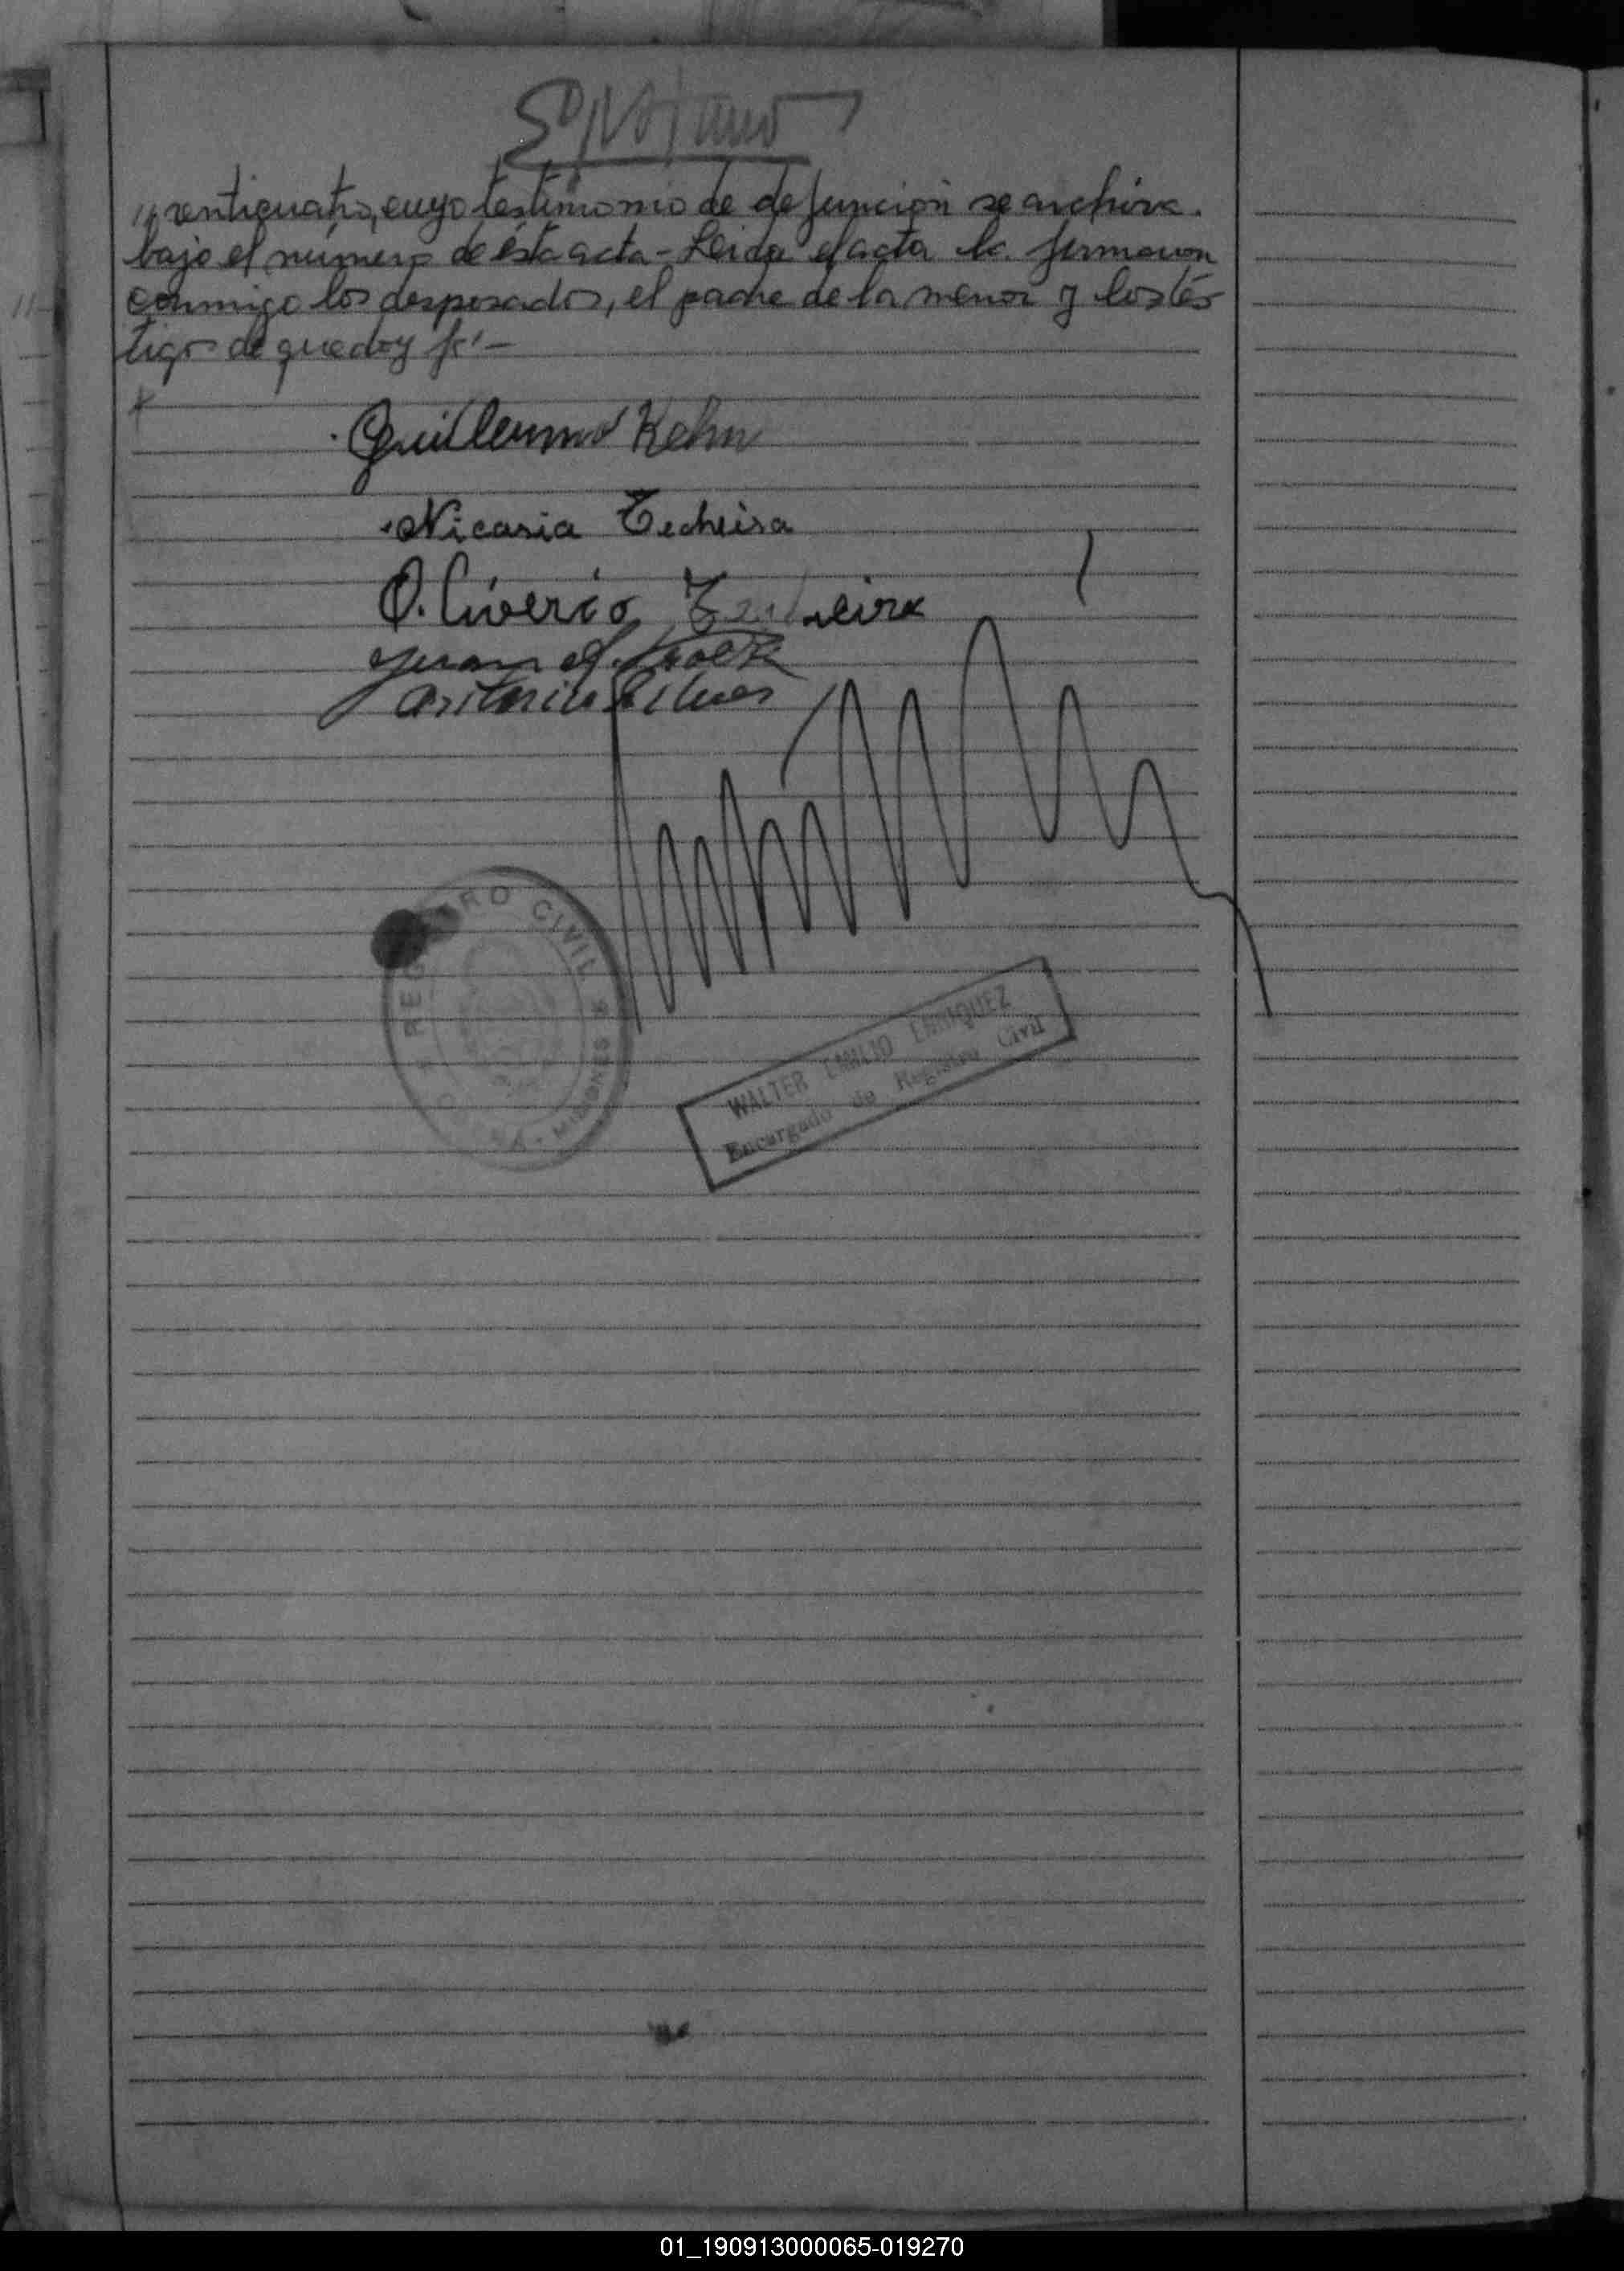 // venticuatro, cuyo testimonio de defunción se archiva
bajo el número de ésta acta - Leida el acta la firmaron
conmigo los desposados, el padre de la menor y los tés
tigos de que doy fé -
Guillermo Kehn
Nicasia Techeira
O. Liverio Techeira
Juan
REGISTRO CIVIL
MISIONES
WALTER EMILIO ENRIQUEZ
Encargado de Registro Civil
01_190913000065-019270